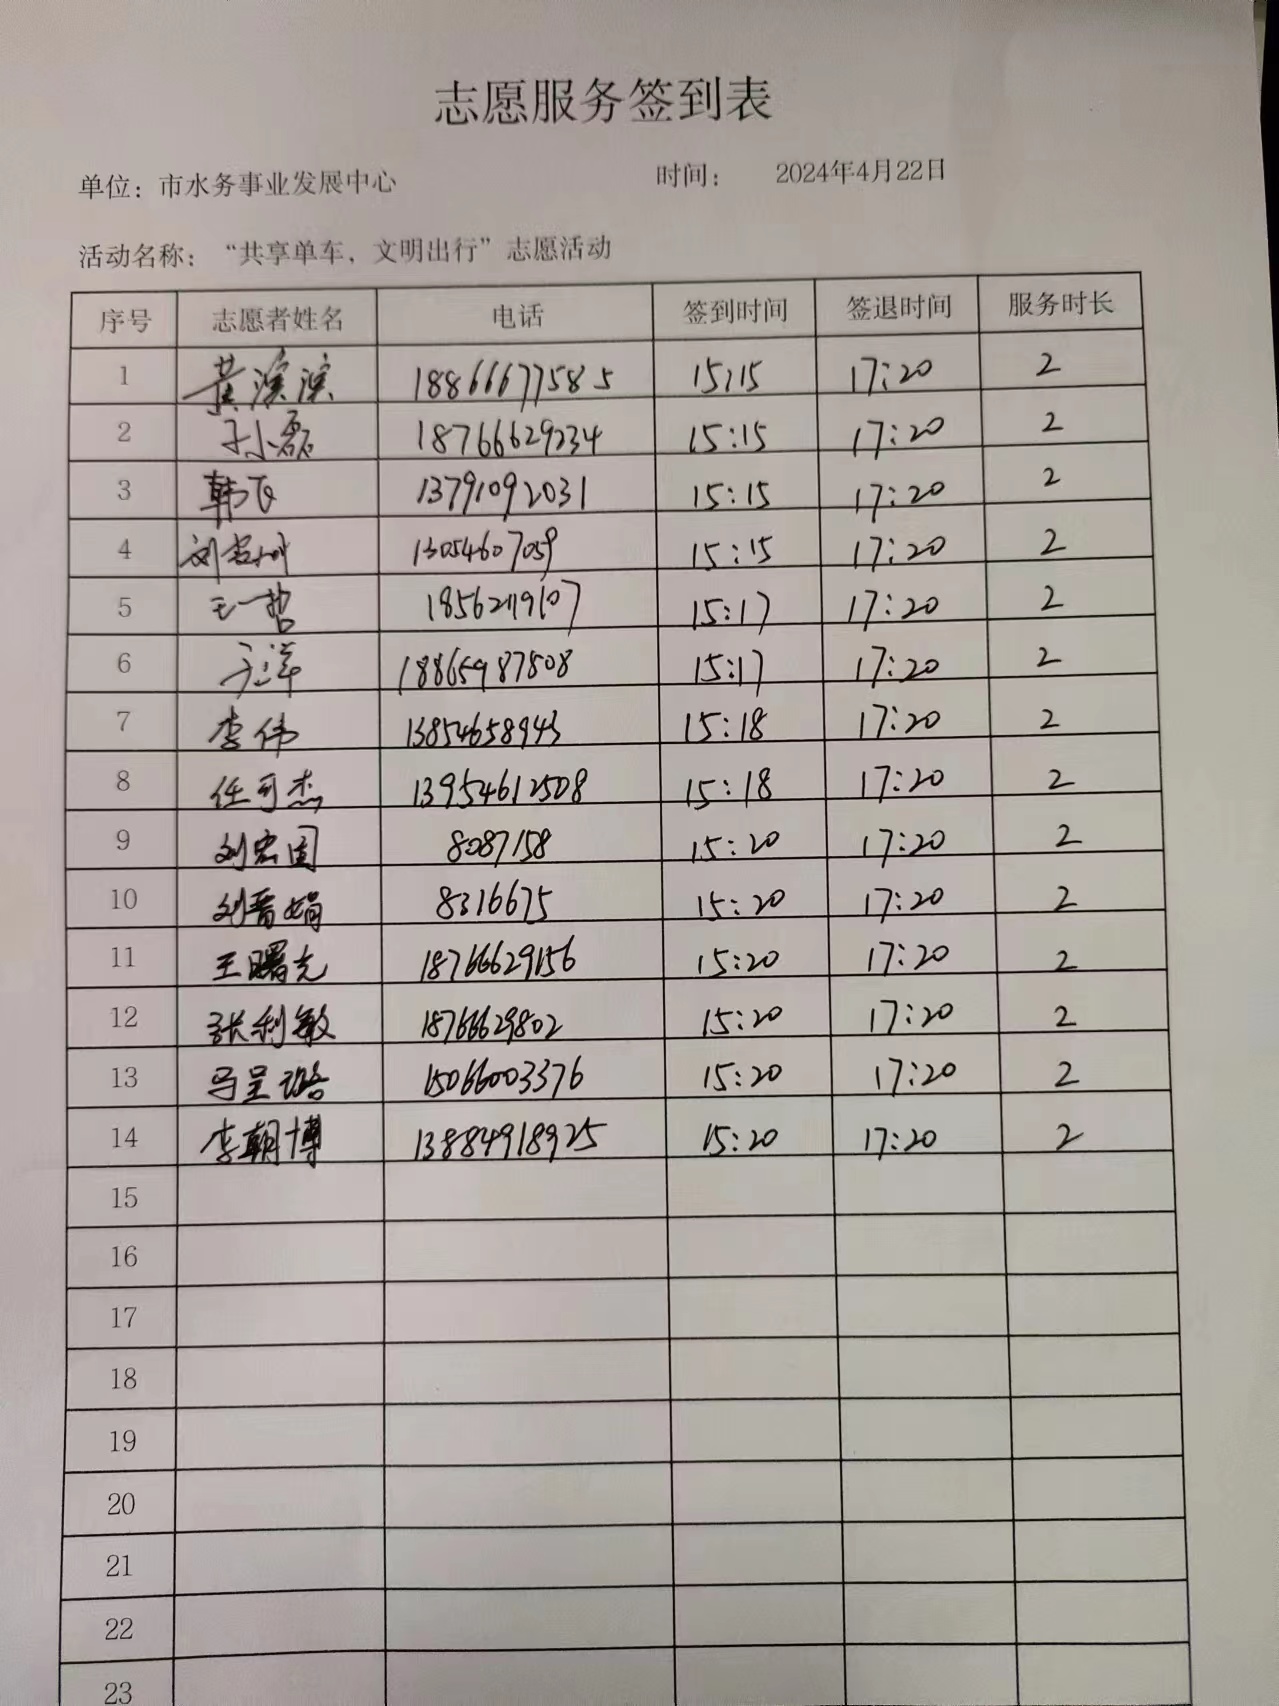 志愿服务签到表
单位：市水务事业发展中心 时间： 2024年4月22日
活动名称：“共享单车，文明出行”志愿活动
序号 志愿者姓名 电话 签到时间 签退时间 服务时长
1 黄滨滨 18866677585 15:15 17:20 2
2 于小磊 18766629234 15:15 17:20 2
3 韩飞 13791092031 15:15 17:20 2
4 刘 13054607059 15:15 17:20 2
5 王一哲 15:17 17:20 2
6 于洋 18865987808 15:17 17:20 2
7 李伟 13854658943 15:18 17:20 2
8 任可杰 13954612508 15:18 17:20 2
9 刘宏国 8087158 15:20 17:20 2
10 刘晋娟 8316675 15:20 17:20 2
11 王曙光 18766629156 15:20 17:20 2
12 张利敏 18766629802 15:20 17:20 2
13 马呈璐 15066003376 15:20 17:20 2
14 李朝博 13884918925 15:20 17:20 2
15
16
17
18
19
20
21
22
23